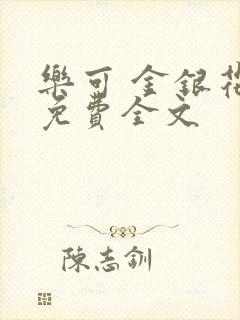 樂可 金銀花
免費全文
陳志釧